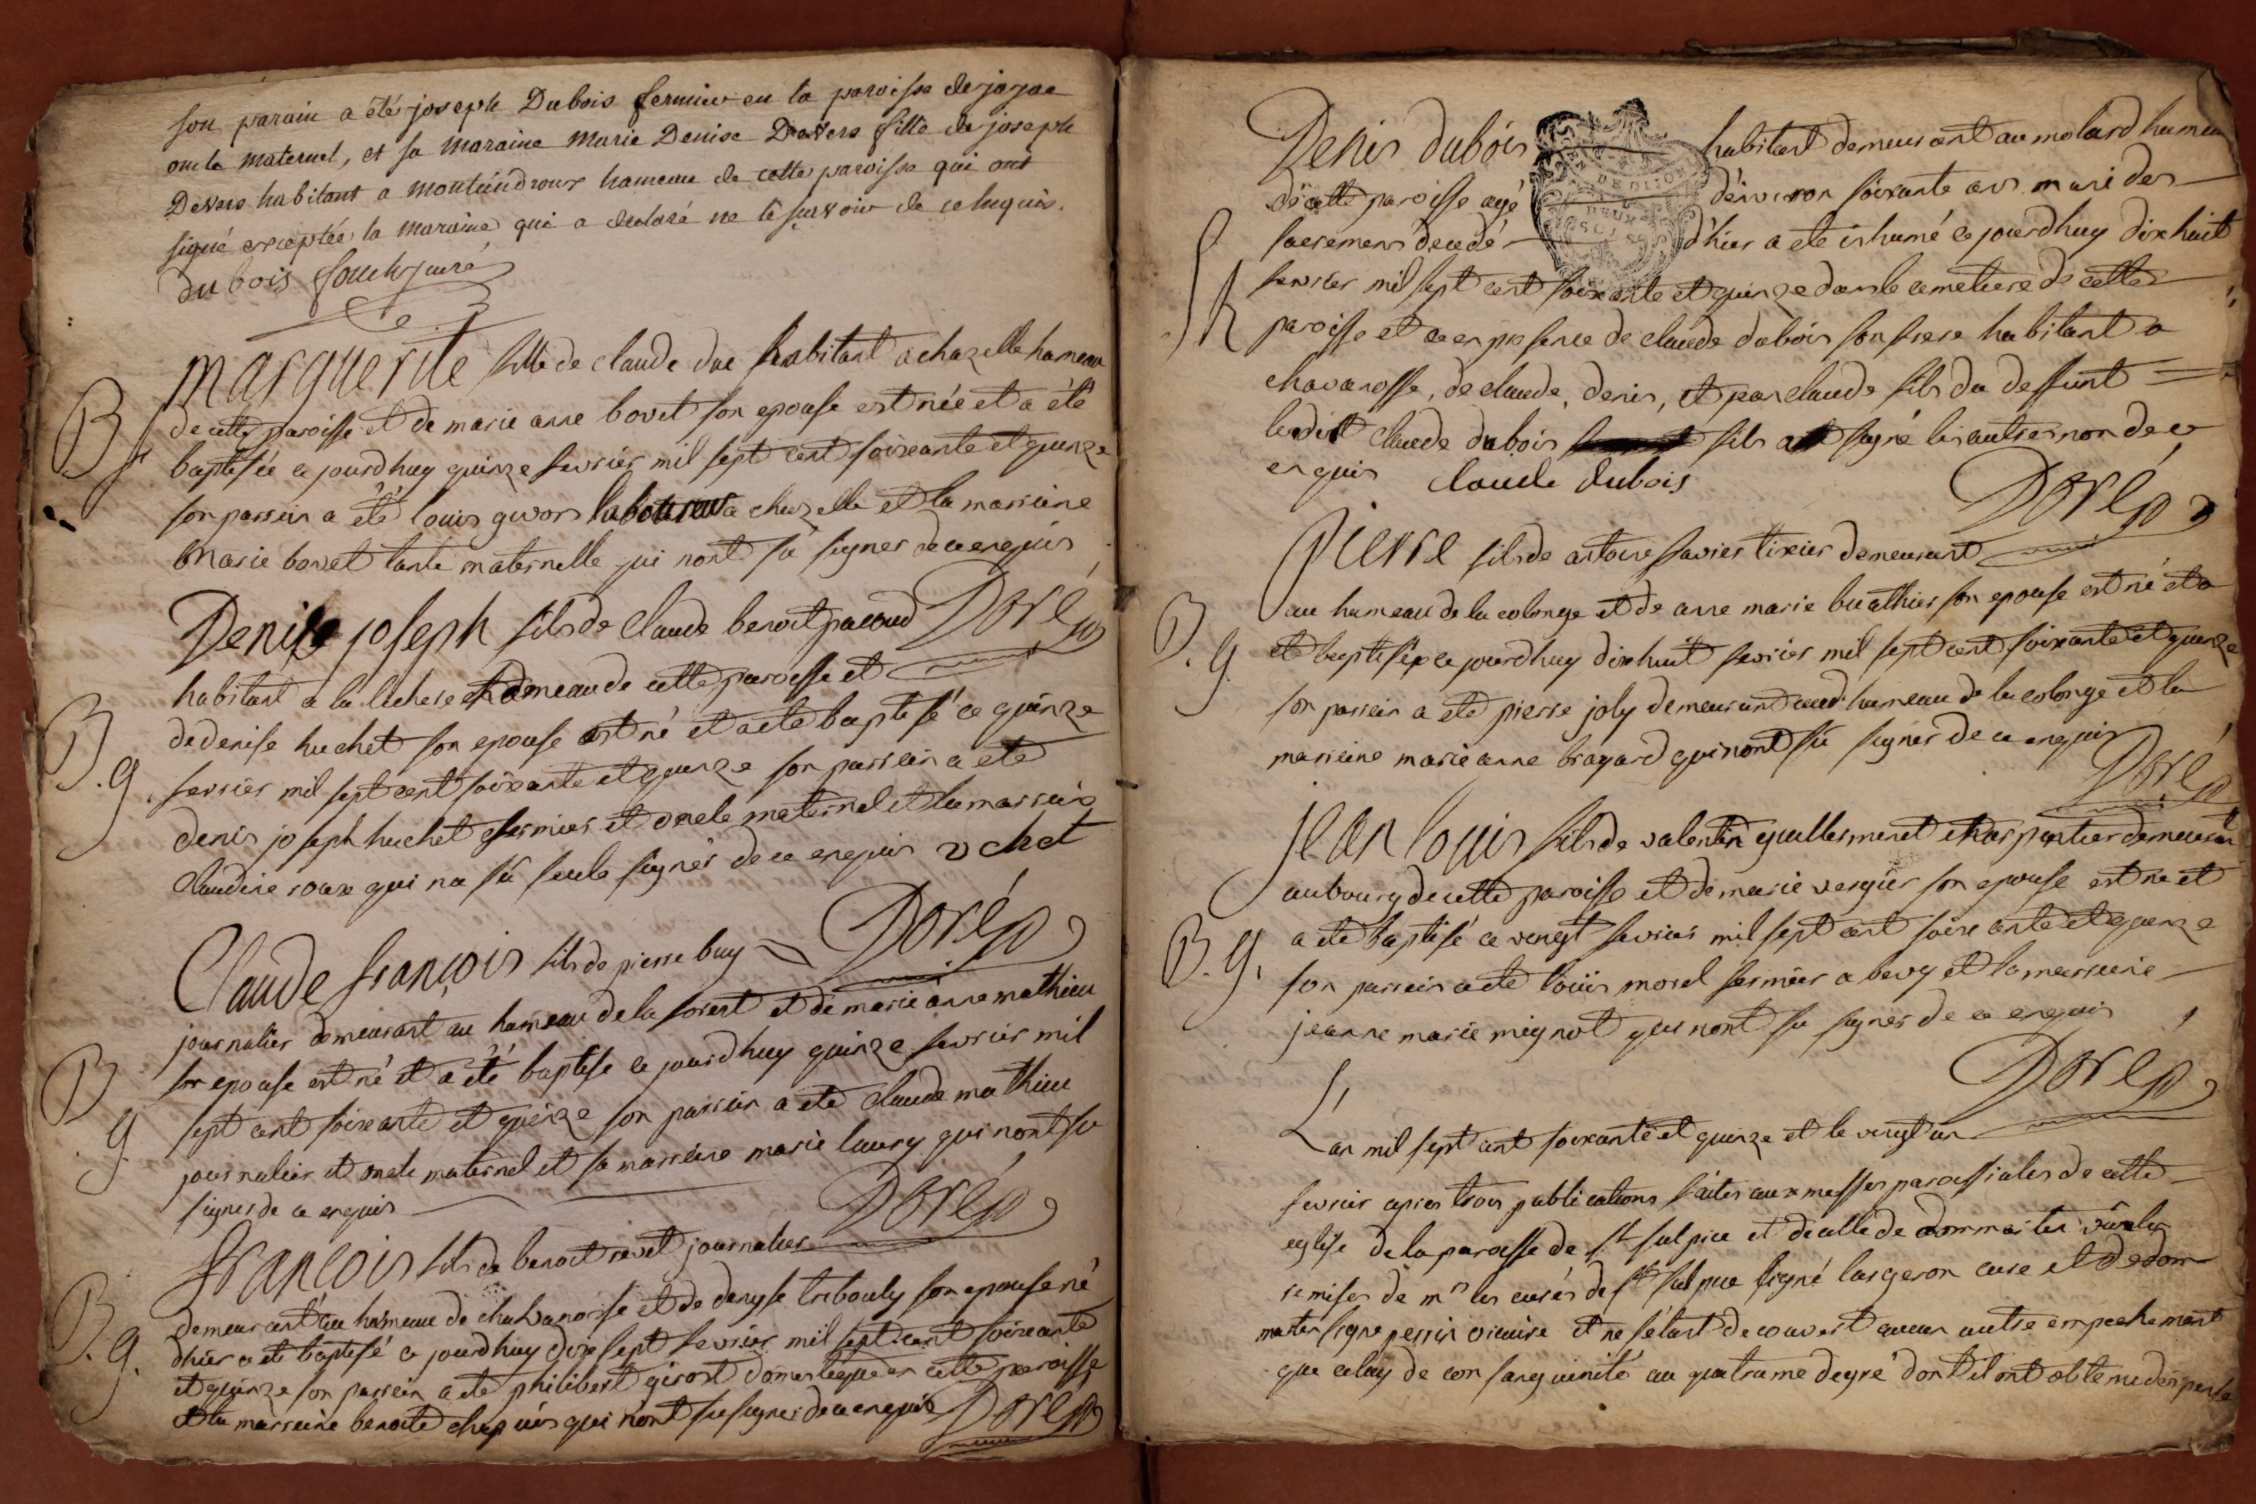 son parain a été joseph Dubois fermier en la paroisse de jayac
oncle maternel, et sa maraine Marie Denise Devers fille de joseph
Devers habitant a hameau de cette paroisse qui ont
signé exceptée la maraine qui a declaré ne le sçavoir de ce enquis.
dubois
B
g
marguerite fille de claude duc habitant a chazelle hameau
de cette paroisse et de marie anne bovet son epouse est née et a été
baptisée ce jourdhuy quinze fevrier mil sept cent soixante et quinze
son parrein a été louis laboureur a chazelle et la marreine
marie bovet tante maternelle qui n'ont sû signer de ce enquis
Doré
Denis joseph fils de claude benoit pacoud
B. g.
habitant a la lechere hameau de cette paroisse et
de denise huchet son epouse est né et a été baptisé ce quinze
fevrier mil sept cent soixante et quinze son parrein a ete
denis joseph huchet fermier et oncle maternel et la marreine
claudine roux qui na sû seule signer de ce enquis uchet
Doré
Claude françois fils de pierre buy
B
g
journalier demeurant au hameau de la forest et de marie anne mathieu
son epouse est né et a été baptisé ce jourdhuy quinze fevrier mil
sept cent soixante et quinze son parrein a ete claude mathieu
journalier et oncle maternel et sa marreine marie laury qui n'ont sû
signer de ce enquis
Doré
françois fils de benoit revet journalier
B. g.
demeurant au hameau de chavanosse et de denyse tribouly son epouse né
d'hier a ete baptisé ce jourdhuy dix sept fevrier mil sept cent soixante
et quinze son parrein a ete philibert girost domestique en cette paroisse
et la marreine benoite chapuis qui n'ont sû signer de ce enquis Doré
Denis dubois habitant demeurant au molard hameau
de cette paroisse agé d'environ soixante ans muni des
sacremens decedé d'hier a ete inhumé ce jourdhuy dix huit
fevrier mil sept cent soixante et quinze dans le cemetiere de cette
paroisse et ce en presence de claude dubois son frere habitant a
chavanosse, de claude, denis, et jean claude fils du deffunt
ledit claude dubois fils a signé les autres non de ce
enquis claude dubois
Doré
Pierre fils de antoine favier tixier demeurant
B. g.
au hameau de la colonge et de anne marie buathier son epouse est né et a
eté baptisé ce jourdhuy dix huit fevrier mil sept cent soixante et quinze
son parrein a ete pierre joly demeurant audit hameau de la colonge et la
marreine marie anne bragard qui n'ont sû signer de ce enquis
Doré
jean louis fils de valentin guillerminet charpentier demeurant
B. g.
au bourg de cette paroisse et de marie vergier son epouse est né et
a eté baptisé ce vengt fevrier mil sept cent soixante et quinze
son parrein a ete loüis morel fermier a bevy et la marreine
jeanne marie mignot qui n'ont su signer de ce enquis
Doré
L'an mil sept cent soixante et quinze et le vengt un
fevrier apres trois publications faites aux messes paroissiales de cette
eglise de la paroisse de st sulpice et de celle de dommartin
remises de mrs les curés de st sulpice signé largeron curé et de dom
martin signé perrin vicaire et ne s'etant decouvert aucun autre empechement
que celuy de consanguinité au quatrieme degré dont ils ont obtenu dispense